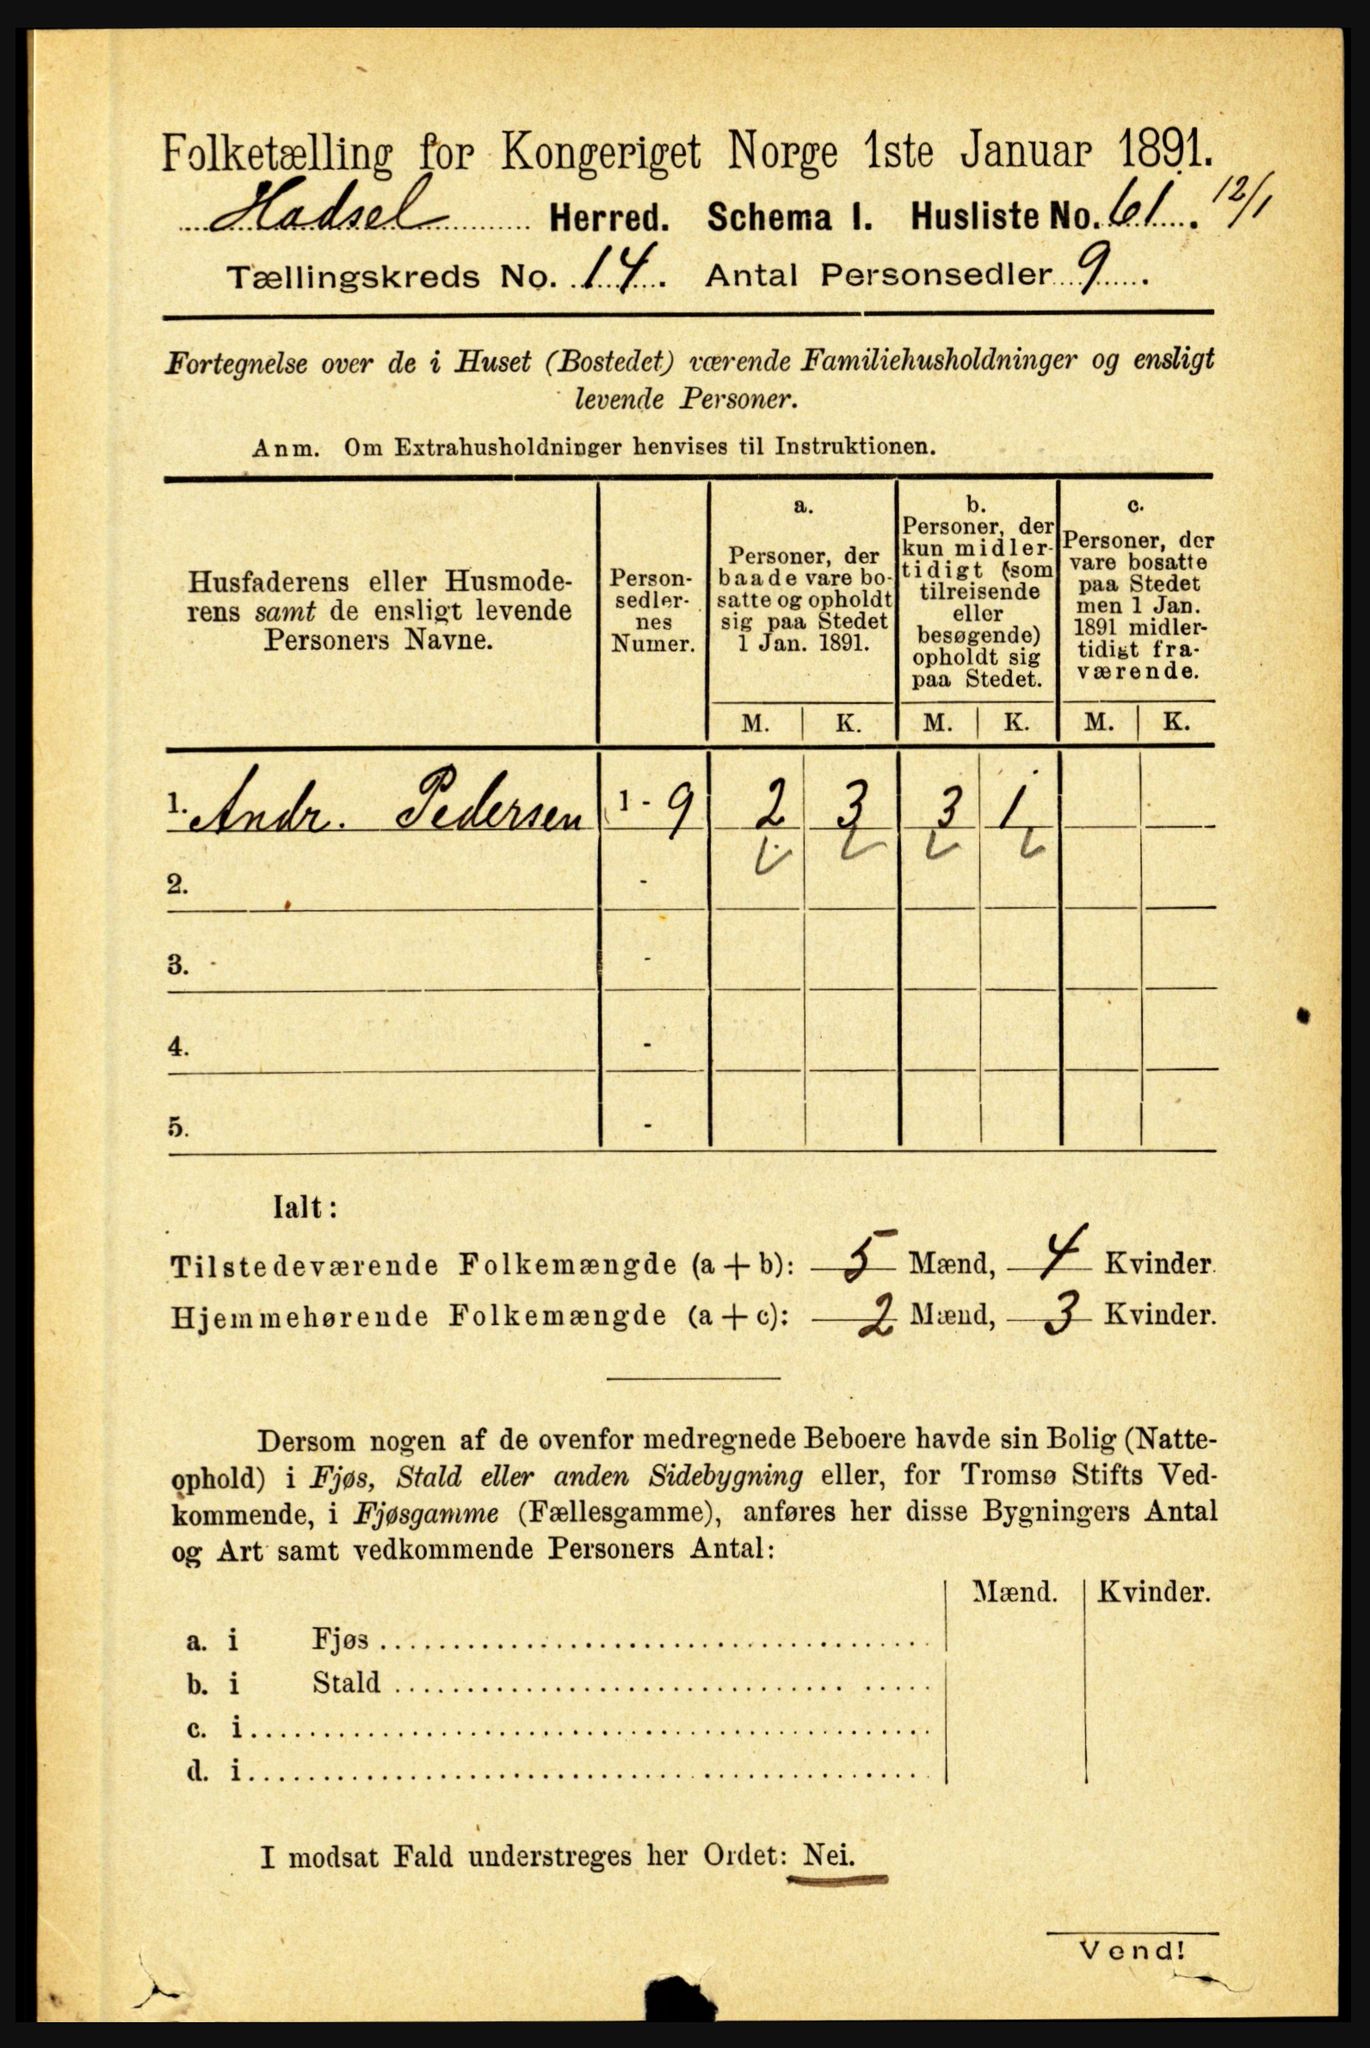 Folketælling for Kongeriget Norge 1ste Januar 1891.
Hadsel Herred. Schema I. Husliste No. 61. 12/1
Tællingskreds No. 14. Antal Personsedler 9.
Fortegnelse over de i Huset (Bostedet) værende Familiehusholdninger og ensligt
levende Personer.
Anm. Om Extrahusholdninger henvises til Instruktionen.
Husfaderens eller Husmode-
rens samt de ensligt levende
Personers Navne.
Person-
sedler-
nes
Numer.
a.
Personer, der
baade vare bo-
satte og opholdt
sig paa Stedet
1 Jan. 1891.
b.
Personer, der
kun midler-
tidigt (som
tilreisende
eller
besøgende)
opholdt sig
paa Stedet.
c.
Personer, der
vare bosatte
paa Stedet
men 1 Jan.
1891 midler-
tidigt fra-
værende.
M. K. M. K. M. K.
1. Andr. Pedersen 1 - 9 2 3 3 1
2. -
3. -
4. -
5. -
Ialt:
Tilstedeværende Folkemængde (a + b): 5 Mænd, 4 Kvinder.
Hjemmehørende Folkemængde (a + c): 2 Mænd, 3 Kvinder.
Dersom nogen af de ovenfor medregnede Beboere havde sin Bolig (Natte-
ophold) i Fjøs, Stald eller anden Sidebygning eller, for Tromsø Stifts Ved-
kommende, i Fjøsgamme (Fællesgamme), anføres her disse Bygningers Antal
og Art samt vedkommende Personers Antal:
Mænd. Kvinder.
a. i Fjøs
b. i Stald
c. i
d. i
I modsat Fald understreges her Ordet: Nei.
Vend!